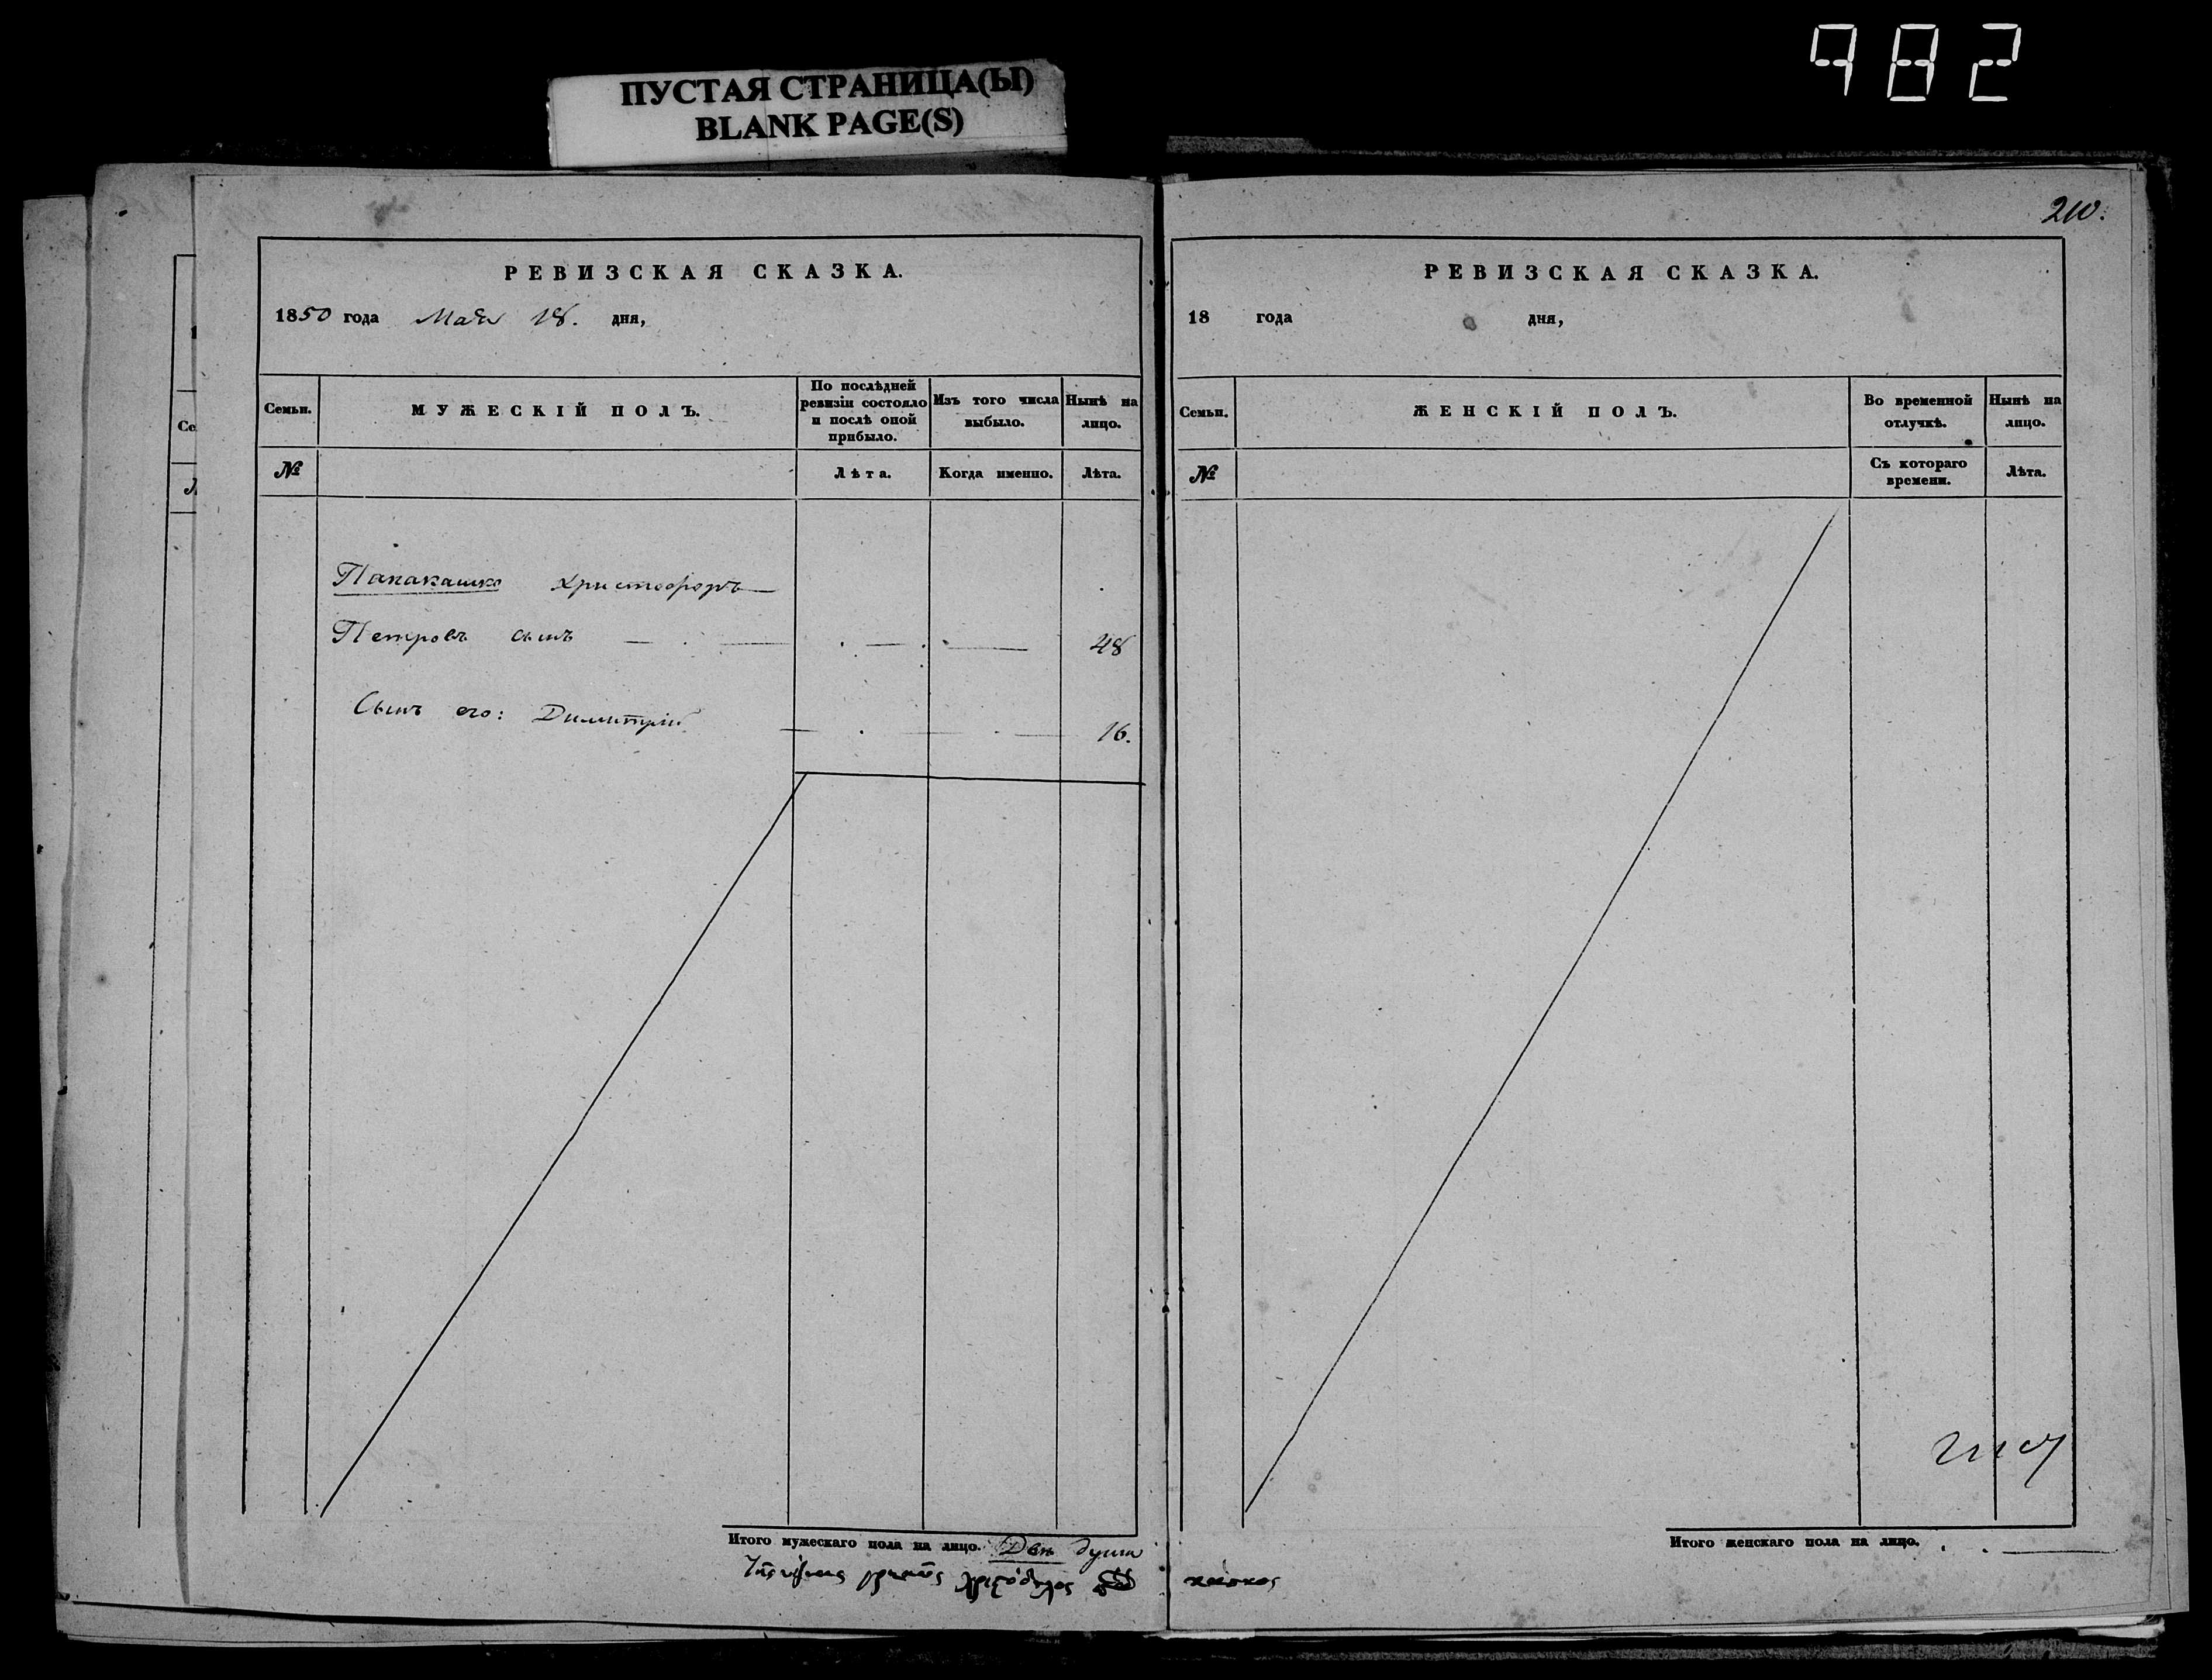 982
ПУСТАЯ СТРАНИЦА(Ы)
BLANK PAGE(S)
РЕВИЗСКАЯ СКАЗКА.
1850 года Мая 18. дня,
Семьи.
МУЖЕСКІЙ ПОЛЪ.
По послѣдней ревизіи состояло и послѣ оной прибыло.
Изъ того числа выбыло.
Нынѣ на лицо.
№
Лѣта.
Когда именно.
Лѣта.
Папакашко Христофоръ
Петровъ сынъ 48
Сынъ его: Димитрій 16.
Итого мужескаго пола на лицо. Двѣ души
210.
РЕВИЗСКАЯ СКАЗКА.
18 года дня,
Семьи.
ЖЕНСКІЙ ПОЛЪ.
Во временной отлучкѣ.
Нынѣ на лицо.
№
Съ котораго времени.
Лѣта.
Итого женскаго пола на лицо.